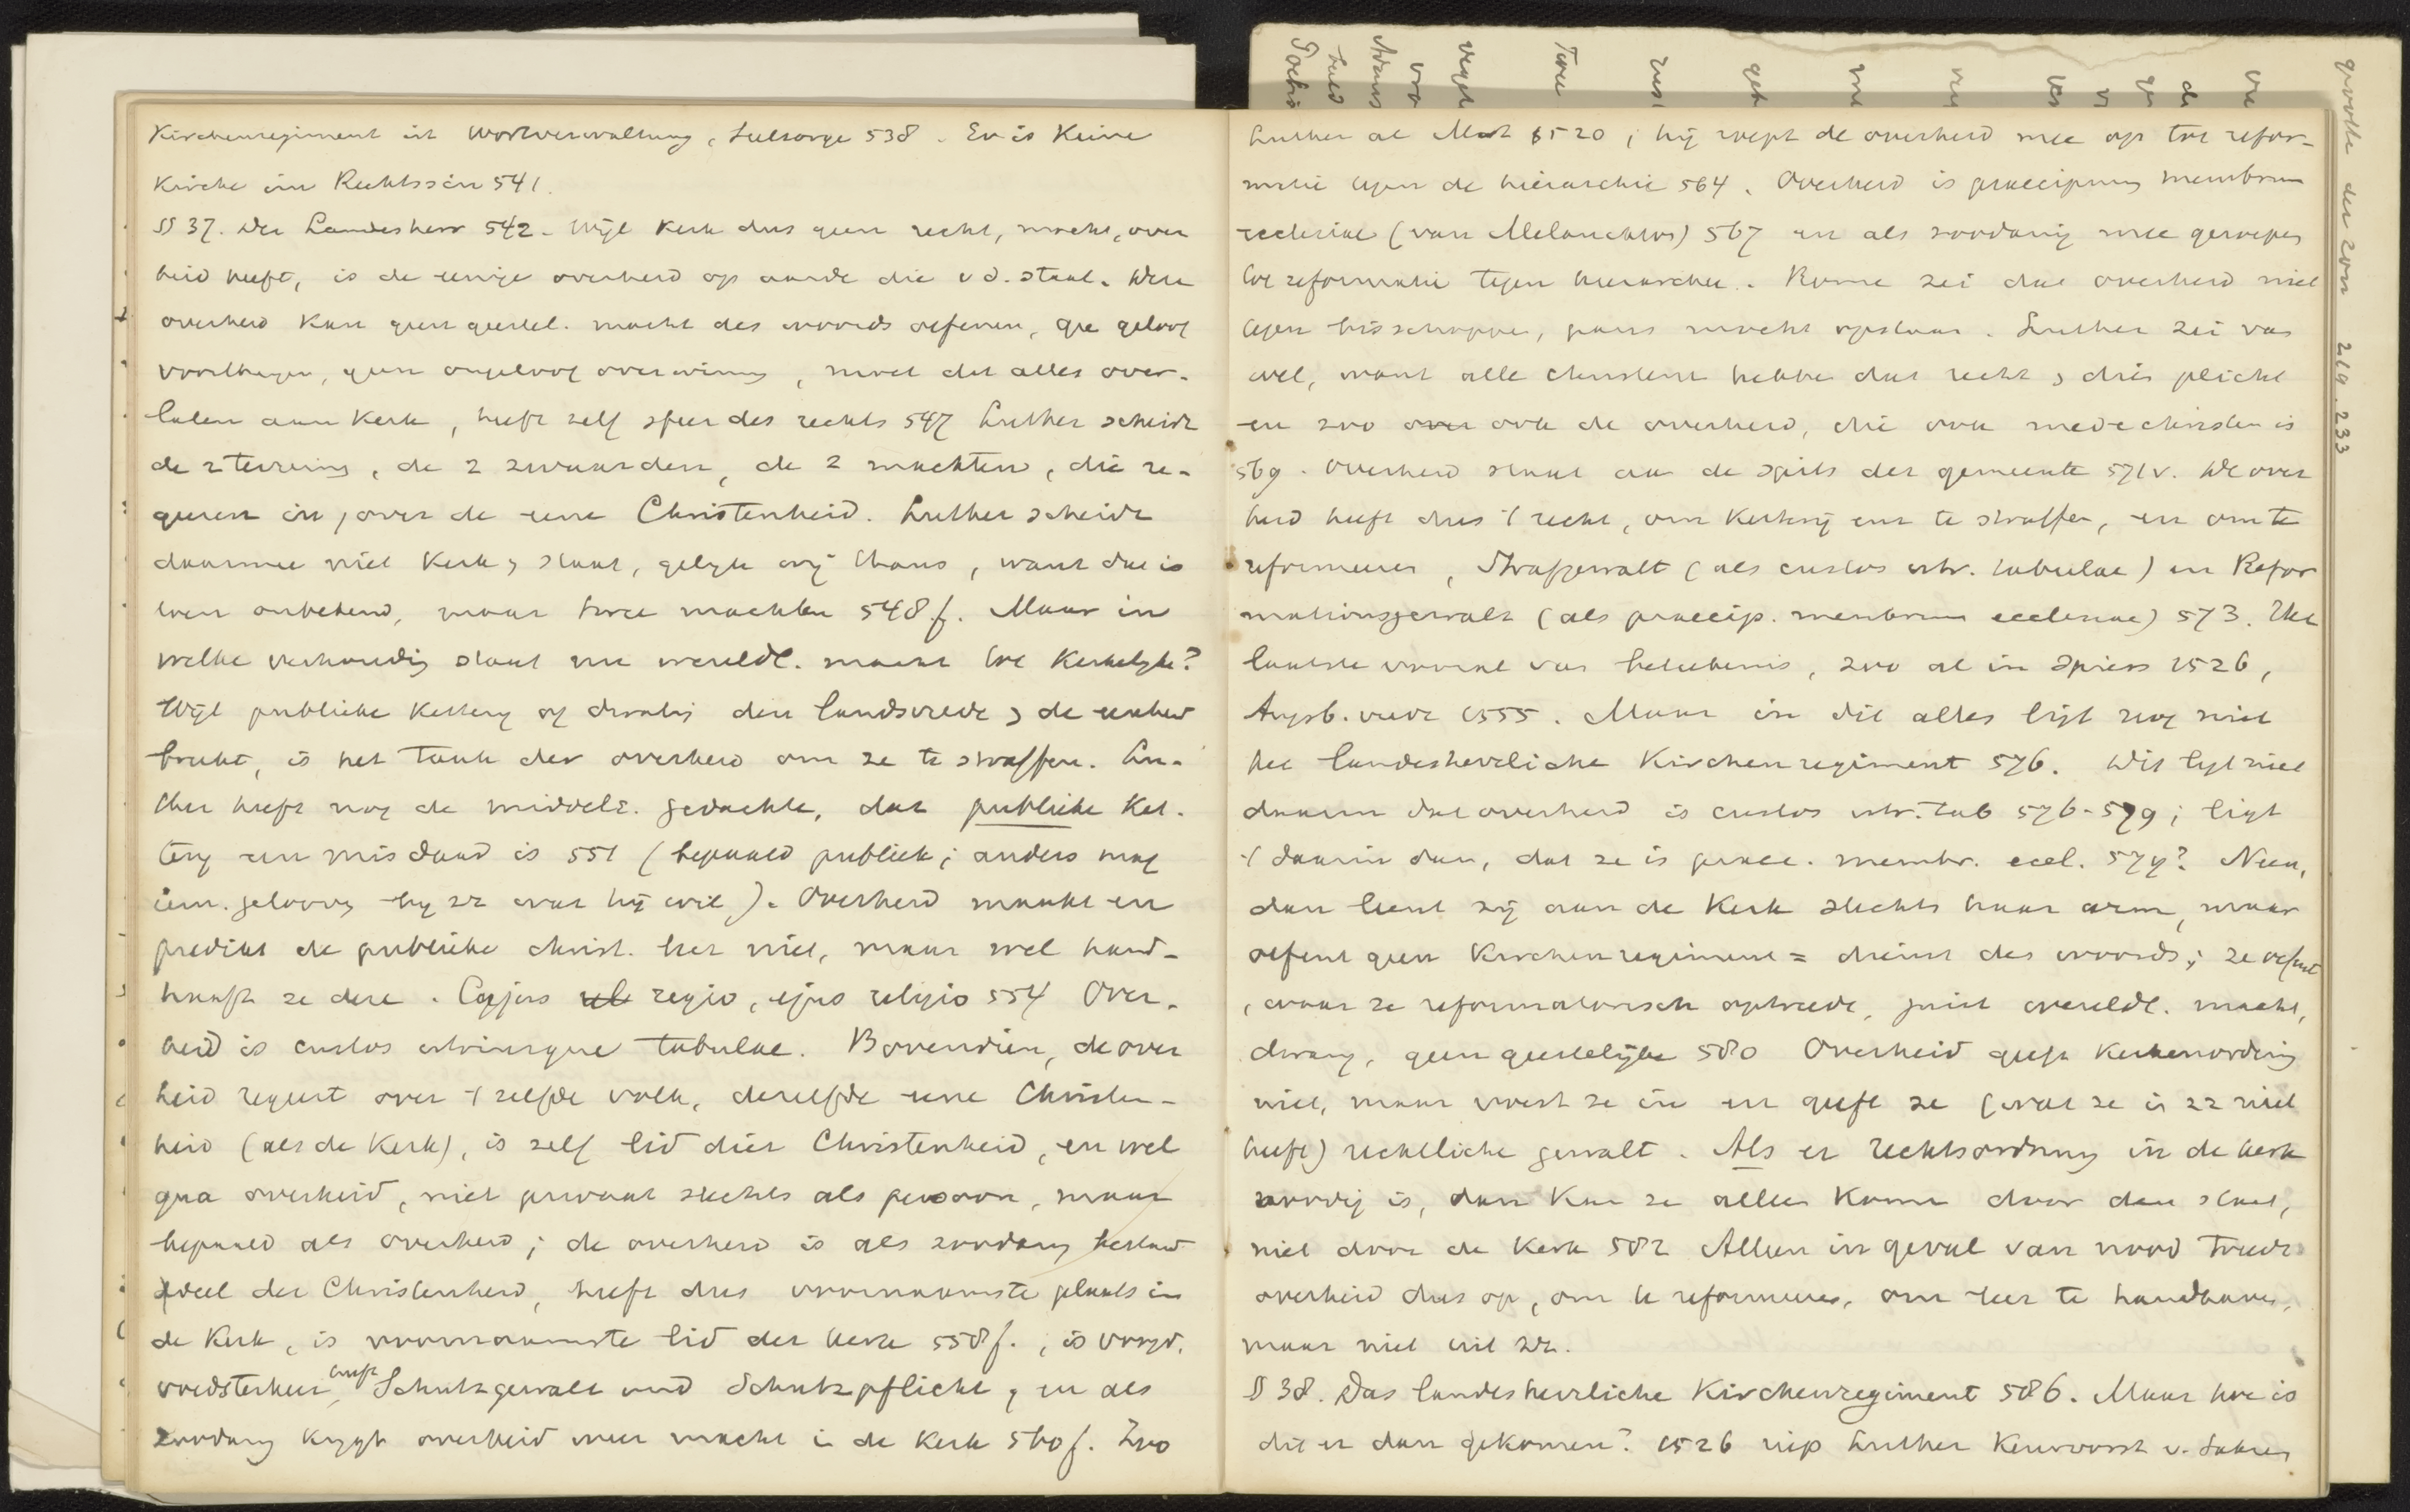 Kirchenregiment ist Wortverwaltung, Seelsorge 538. Er is Keine
Kirche im Rechtssin 541.
§ 37. Der Landesherr 542. Wijl Kerk dus geen recht, macht, over
heid heeft, is de eenige overheid op aarde die v d. staat. Deze
overheid kan geen geestel. macht des woords oefenen, gee geloof
voortbrengen, geen ongeloof overwinnen, moet dit alles over-
laten aan Kerk, heeft zelf sfeer des rechts 547 Luther scheidt
de 2 terreins, de 2 zwaarden, de 2 machten, die re-
geeren in, over de eene Christenheid. Luther scheidt
daarmee niet Kerk & staat, gelijk wij thans, want dat is
toen onbekend, maar twee machten 548 f. Maar in
welke verhoudig staat nu wereldl. macht tot Kerkelijke?
Wijl publieke Kettery of dwalig den landsvrede & de eenheid
breekt, is het taak der overheid om ze te straffen. Lu-
ther heeft nog de middele. gedachte, dat publieke Ket-
tery een misdaad is 551 (bepaald publiek; anders mag
iem. gelooven by zz wat hij wil). Overheid maakt en
predikt de publieke christ. leer niet, maar wel hand-
haaft ze deze. Cujus reg regio, ejus religio 554 Over-
heid is custos utriusque tabulae. Bovendien, de over
heid regeert over 't zelfde volk, dezelfde eene Christen-
heid (als de Kerk), is zelf lid dier Christenheid, en wel
qua overheid, niet privaat slechts als persoon, maar
bepaald als overheid; de overheid is als zoodanig bestand
deel der Christenheid, heeft dus voornaamste plaats in
de Kerk, is voornaamste lid der kerk 558 f., is
voedsterheer, heeft Schutzgewalt und Schutzpflicht, en als
zoodanig krijgt overheid weer macht in de Kerk 560 f. Zoo
Luther al 1520; hij roept de overheid mee op tot refor-
matie tegen de hierarchie 564. Overheid is praecipuum membrum
ecclesiae (van Melanchton) 567 en als zoodanig mee geroepen
tot reformatie tegen hierarchie. Rome zei dat overheid niet
tegen bisschoppen, paus mocht opstaan. Luther zei van
wel, want alle christenen hebben dat recht & dien plicht
en zoo over ook de overheid, die ook medechristen is
569. Overheid staat aan de spits der gemeente 571 v. De over
heid heeft dus 't recht, om Ketterij enz te straffen, en om te
reformeeren, Strafgewalt (als custos utr. tabulae) en Refor
mationsgewalt (als praecip. membrum ecclesiae) 573. Het
laatste vooral van beteekenis, zoo al in Spiers 1526,
Augsb. vrede 1555. Maar in dit alles ligt nog niet
het landesherrliche Kirchenregiment 576. Dit ligt niet
daarin dat overheid is custos utr. tab 576-579; ligt
't daarin dan, dat ze is praec. membr. eccl. 579? Neen,
dan leent zij aan de Kerk slechts haar arm, maar
oefent geen Kirchenregiment = dienst des woords; ze oefent
, waar ze reformatorisch optreedt, juist wereldl. macht,
dwang, geen geestelijke 580 Overheid geeft Kerkenordening
niet, maar voert ze in en geeft ze (wat ze in zz niet
heeft) rechtliche gewalt. Als er rechtsordnung in de kerk
noodig is, dan kan ze alleen komen door den staat,
niet door de Kerk 582 Alleen in geval van nood treedt
overheid dus op, om te reformeeren, om leer te handhaven,
maar niet uit zz.
§ 38. Das landesherrliche Kirchenregiment 586. Maar hoe is
dit er dan gekomen? 1526 riep Luther Keurvorst v. Saksen
grootte der zon 219. 233